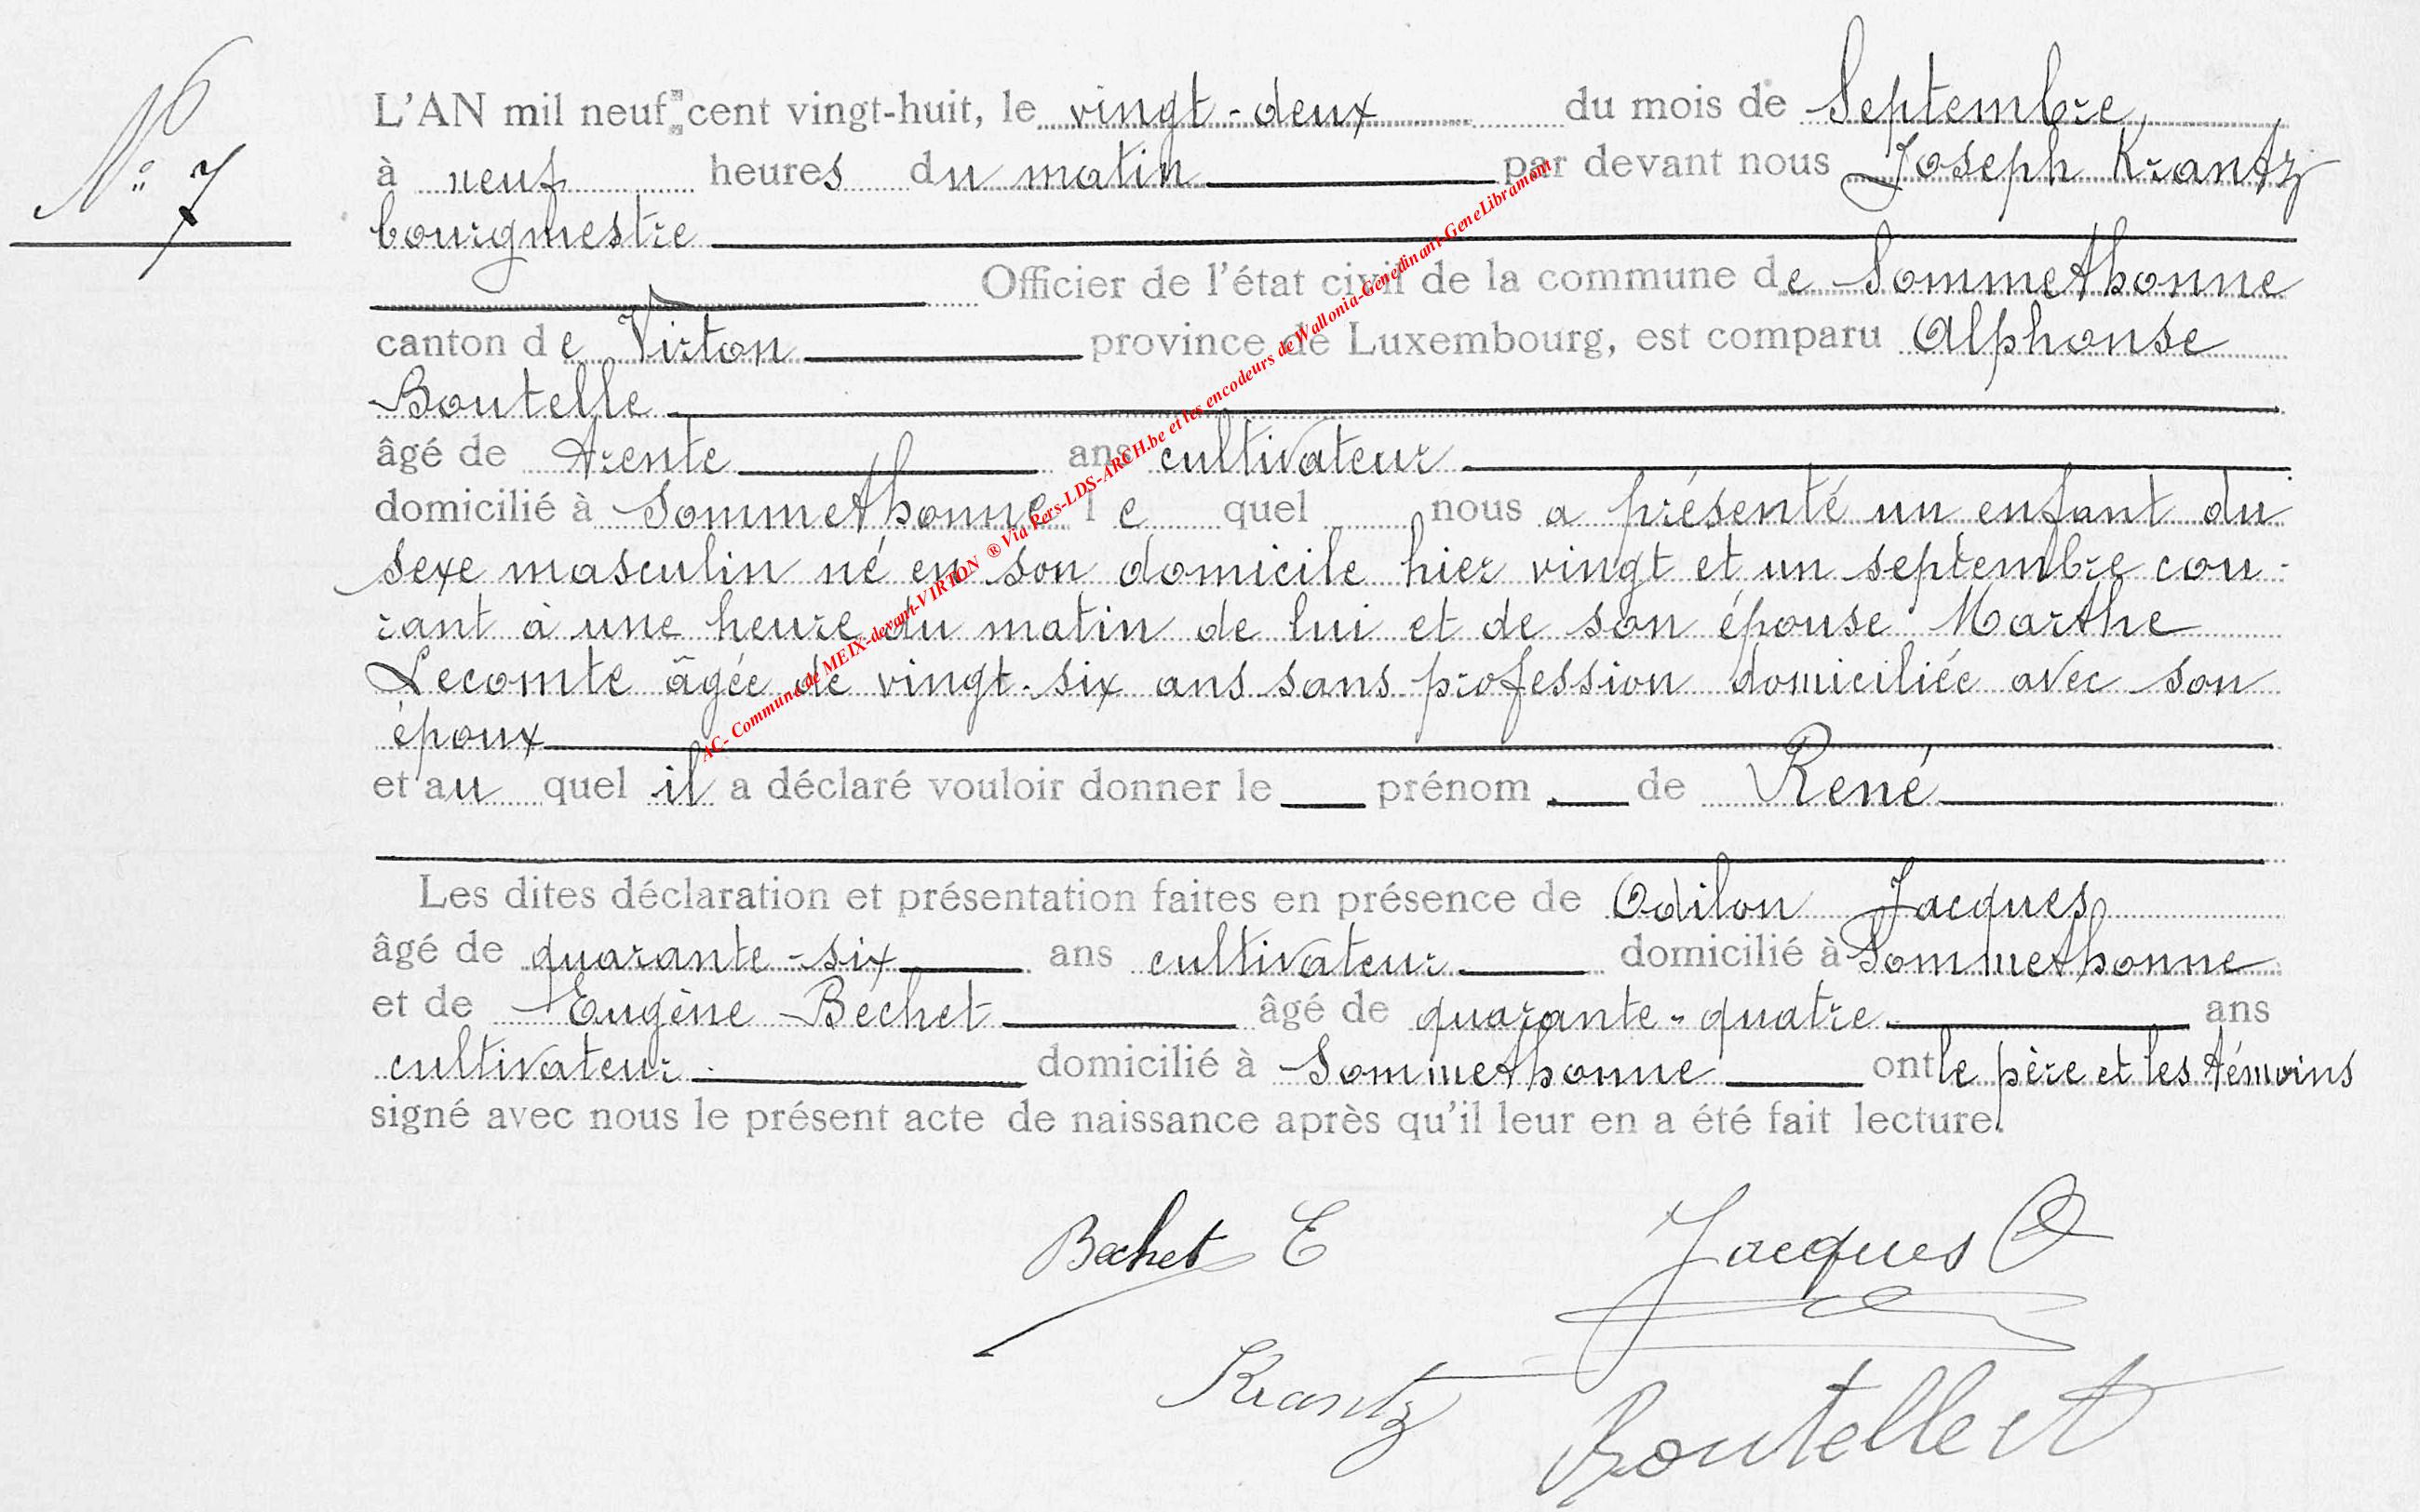 N° 7
L'AN mil neuf cent vingt-huit, le vingt-deux du mois de Septembre
à neuf heures du matin par devant nous Joseph Krantz
bourgmestre
Officier de l'état civil de la commune de Sommethonne
canton de Virton province de Luxembourg, est comparu Alphonse
Boutelle
âgé de trente ans cultivateur
domicilié à Sommethonne le quel nous a présenté un enfant du
sexe masculin né en son domicile hier vingt et un septembre cou-
rant à une heure du matin de lui et de son épouse Marthe
Lecomte âgée de vingt-six ans sans profession domiciliée avec son
époux
et au quel il a déclaré vouloir donner le prénom de René
Les dites déclaration et présentation faites en présence de Odilon Jacques
âgé de quarante-six ans cultivateur domicilié à Sommethonne
et de Eugène Béchet âgé de quarante-quatre ans
cultivateur domicilié à Sommethonne ont le père et les témoins
signé avec nous le présent acte de naissance après qu'il leur en a été fait lecture.
Bechet E Jacques O
Krantz Boutelle A
AC- Commune de MEIX-devant-VIRTON ® Via Pers-LDS-ARCH.be et les encodeurs de Wallonia-Genedinant-GeneLibramont